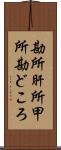 勘所肝所甲
所勘どころ